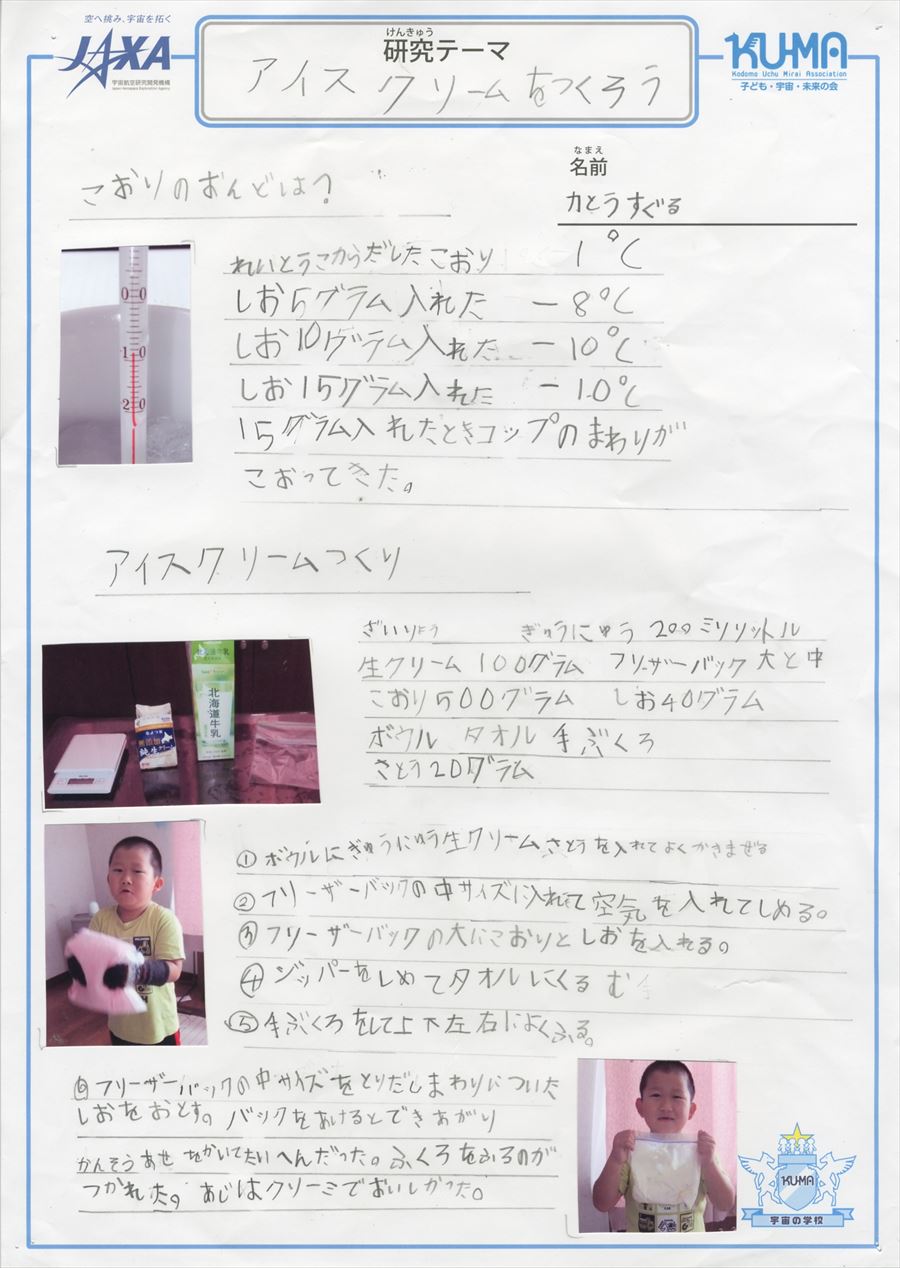 空へ挑み、宇宙を拓く
JAXA
宇宙航空研究開発機構
Japan Aerospace Exploration Agency
けんきゅう
研究テーマ
アイスクリームをつくろう
KU-MA
Kodomo Uchu Mirai Association
子ども・宇宙・未来の会
なまえ
名前
かとうすぐる
こおりのおんどは?
れいとうこからだしたこおり -1℃
しお5グラム入れた -8℃
しお10グラム入れた -10℃
しお15グラム入れた -10℃
15グラム入れたときコップのまわりが
こおってきた。
0 0
1 0
2 0
アイスクリームつくり
ざいりょう ぎゅうにゅう 200ミリリットル
生クリーム 100グラム フリーザーバック 大と中
こおり500グラム しお40グラム
ボウル タオル 手ぶくろ
さとう20グラム
北海道牛乳
①ボウルにぎゅうにゅう生クリームさとうを入れてよくかきまぜる
②フリーザーバックの中サイズに入れて空気を入れてしめる。
③フリーザーバックの大にこおりとしおを入れる。
④ジッパーをしめてタオルにくるむ
⑤手ぶくろをして上下左右によくふる。
⑥フリーザーバックの中サイズをとりだしまわりについた
しおをおとす。バックをあけるとできあがり
かんそうあせをかいてたいへんだった。ふくろをふるのが
つかれた。あじはクリーミでおいしかった。
KU-MA
宇宙の学校